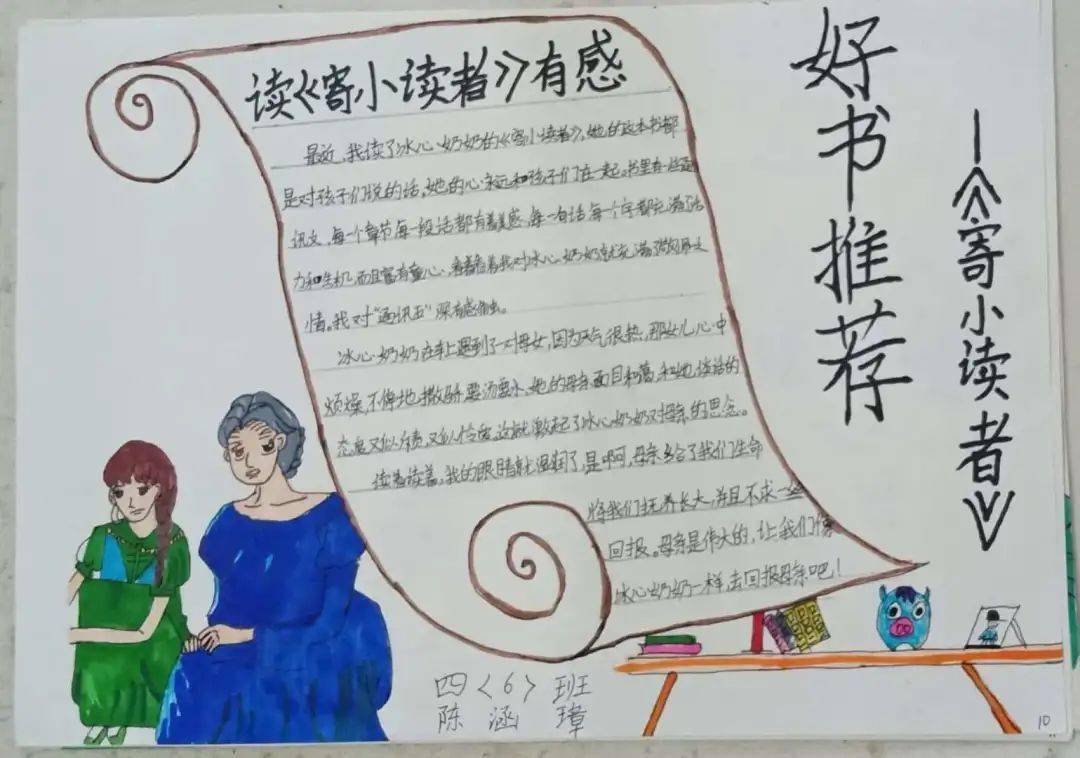 读《寄小读者》有感
最近,我读了冰心奶奶的《寄小读者》,她的这本书都
是对孩子们说的话,她的心永远和孩子们在一起。书里有一些通
讯文,每一个章节每一段话都有着美感,每一句话每一个字都充满了活
力和生机,而且富有童心,看着看着我对冰心奶奶就充满了
情。我对“通讯五”深有感触。
冰心奶奶在车上遇到了一对母女,因为天气很热,那女儿心中
烦燥,不停地撒娇要汤要水,她的母亲面目和蔼,和她谈话的
态度又似 又似怜爱,这就激起了冰心奶奶对母亲的思念。
读着读着,我的眼睛就湿润了,是啊,母亲给了我们生命
将我们抚养长大,并且不求一丝
回报。母亲是伟大的,让我们像
冰心奶奶一样,去回报母亲吧!
好书推荐
—《寄小读者》
四〈6〉班
陈涵璋
10